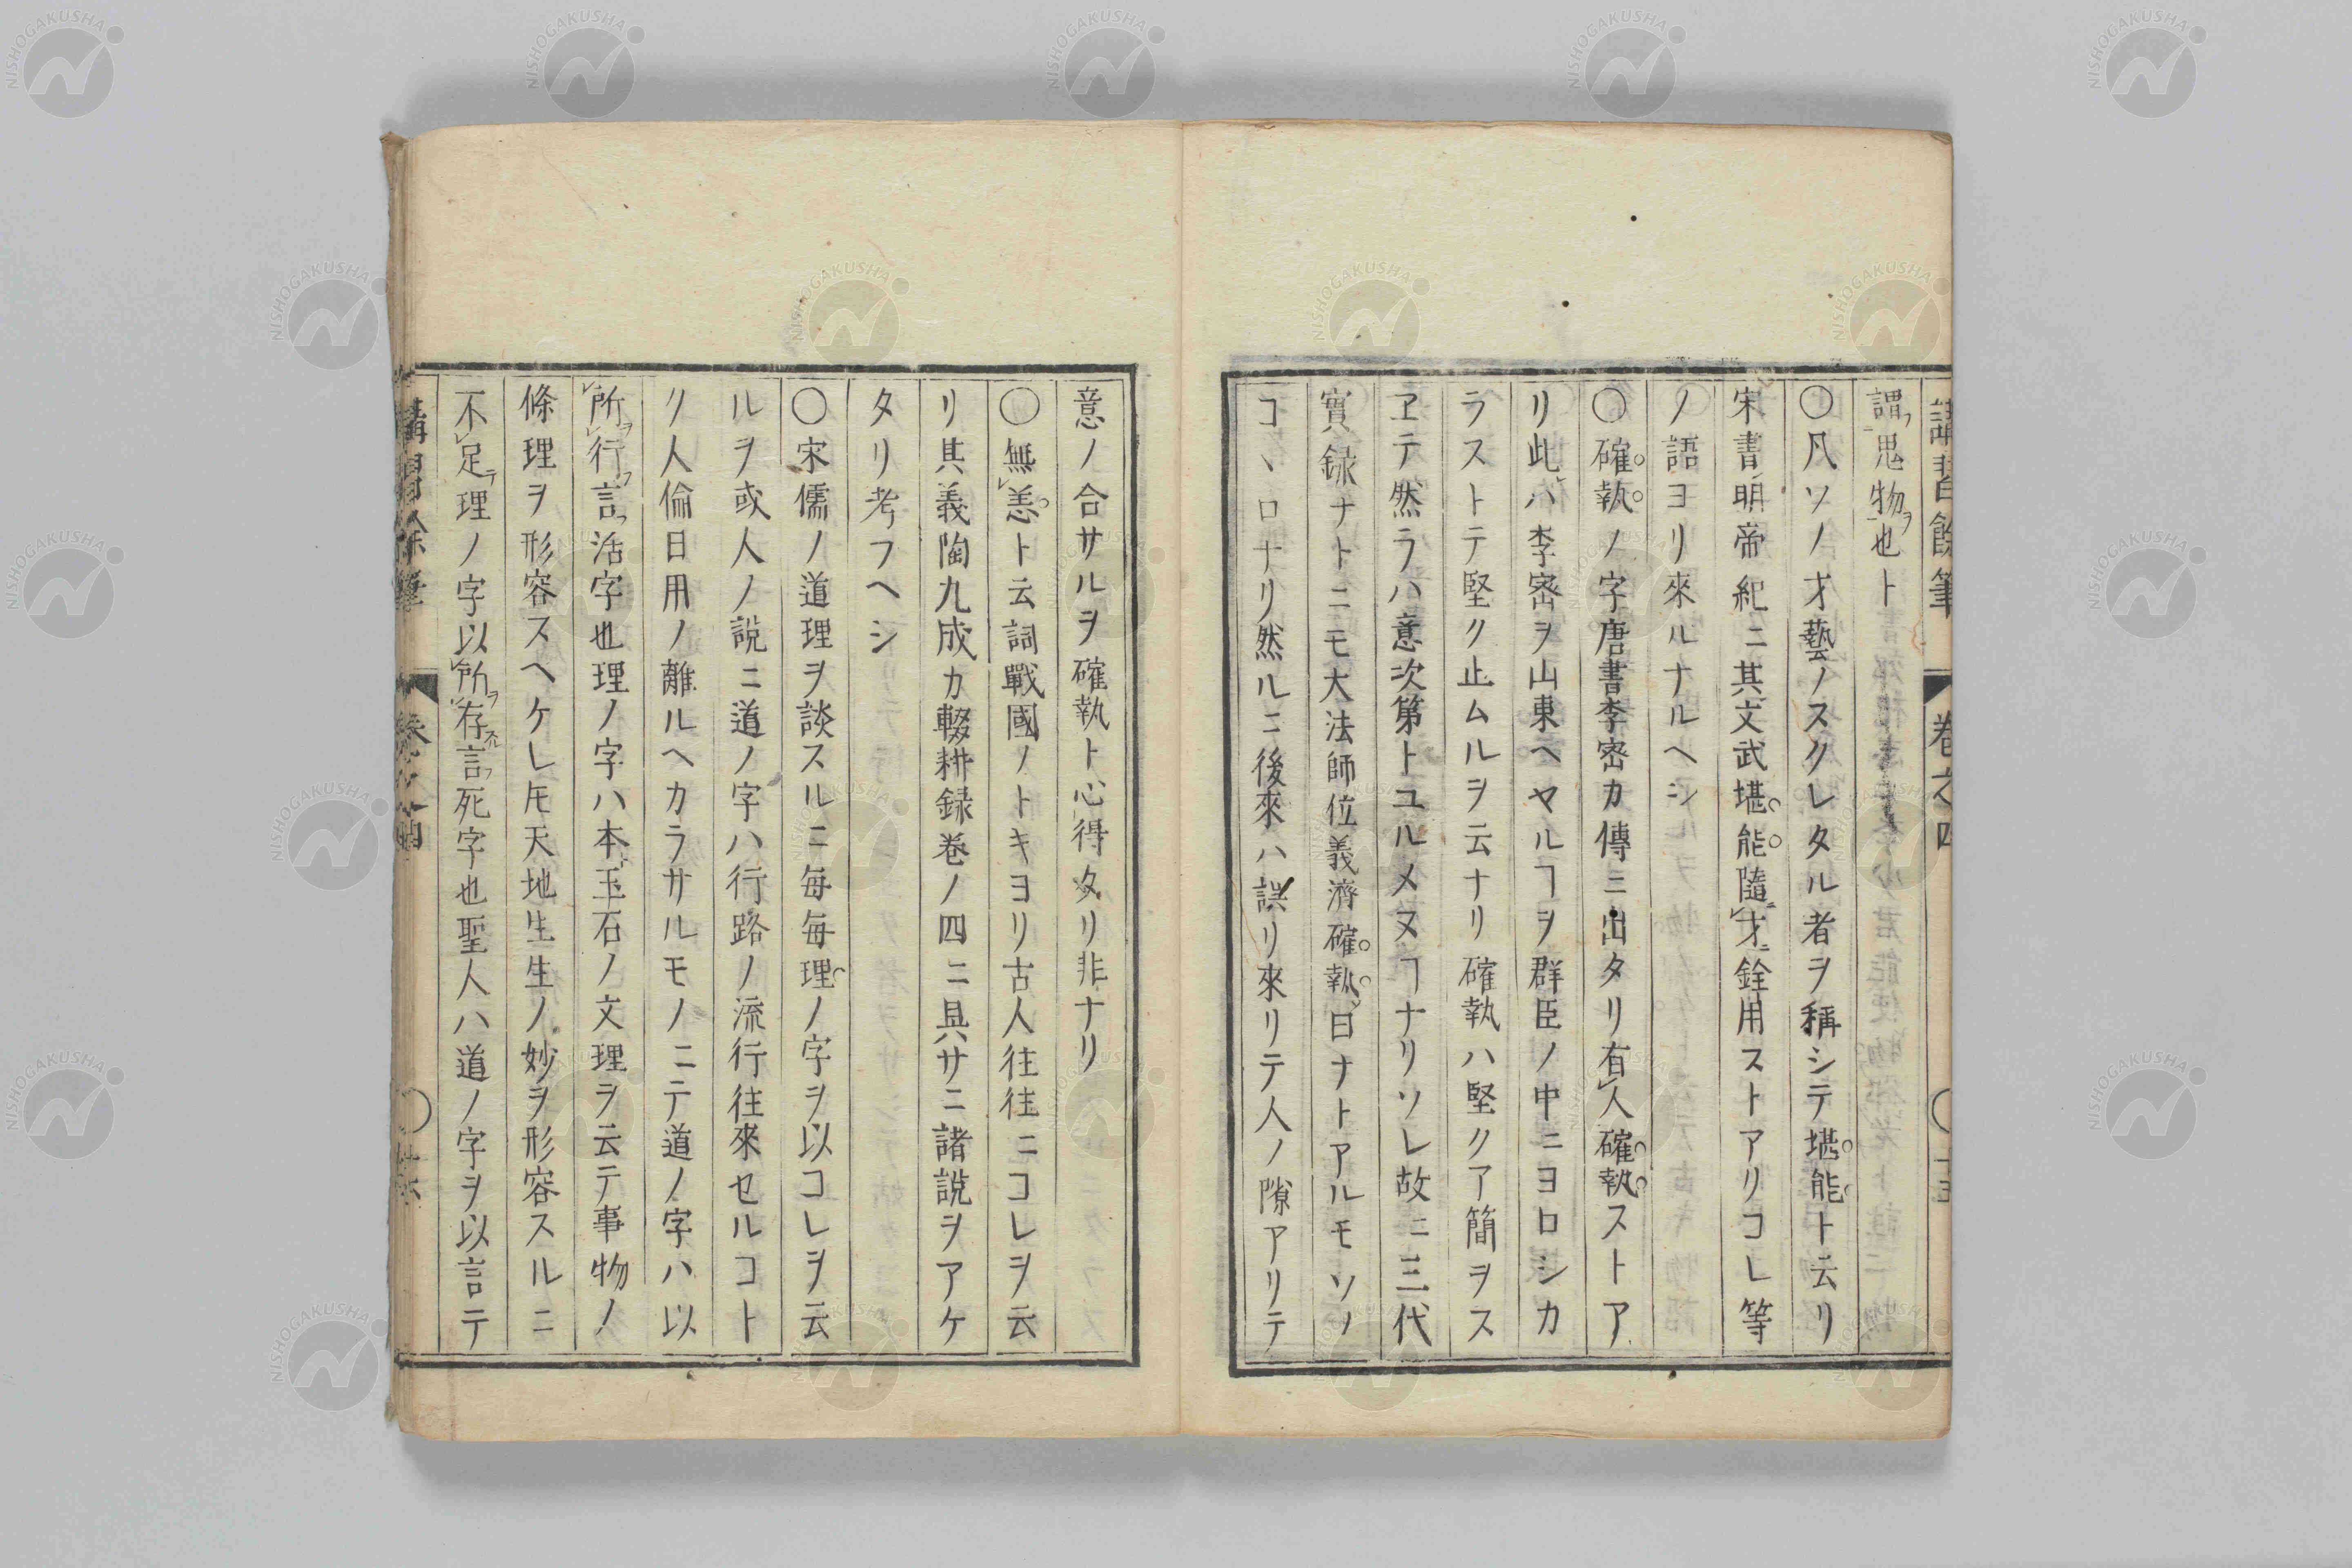 講習餘筆 卷之四 ○ 十五
謂思物也ト
○凡ソノ才藝ノスクレタル者ヲ稱シテ堪能ト云リ
宋書明帝紀ニ其文武堪能隨才銓用ストアリコレ等
ノ語ヨリ來ルナルヘシ
○確執ノ字唐書李密カ傳ニ出タリ有人確執ストア
リ此ハ李密ヲ山東ヘヤルヿヲ群臣ノ中ニヨロシカ
ラストテ堅ク止ムルヲ云ナリ確執ハ堅クア簡ヲス
ヱテ然ラハ意次第トユルメヌヿナリソレ故ニ三代
實録ナトニモ大法師位義濟確執曰ナトアルモソノ
コヽロナリ然ルニ後來ハ誤リ來リテ人ノ隙アリテ
意ノ合サルヲ確執ト心得タリ非ナリ
○無恙ト云詞戰國ノトキヨリ古人往往ニコレヲ云
リ其義陶九成カ輟耕録卷ノ四ニ具サニ諸説ヲアケ
タリ考フヘシ
○宋儒ノ道理ヲ談スルニ毎毎理ノ字ヲ以コレヲ云
ルヲ或人ノ説ニ道ノ字ハ行路ノ流行往來セルコト
ク人倫日用ノ離ルヘカラサルモノニテ道ノ字ハ以
所行言活字也理ノ字ハ本玉石ノ文理ヲ云テ事物ノ
條理ヲ形容スヘケレ𪜈天地生生ノ妙ヲ形容スルニ
不足理ノ字以所存言死字也聖人ハ道ノ字ヲ以言テ
講習餘筆 卷之四 ○